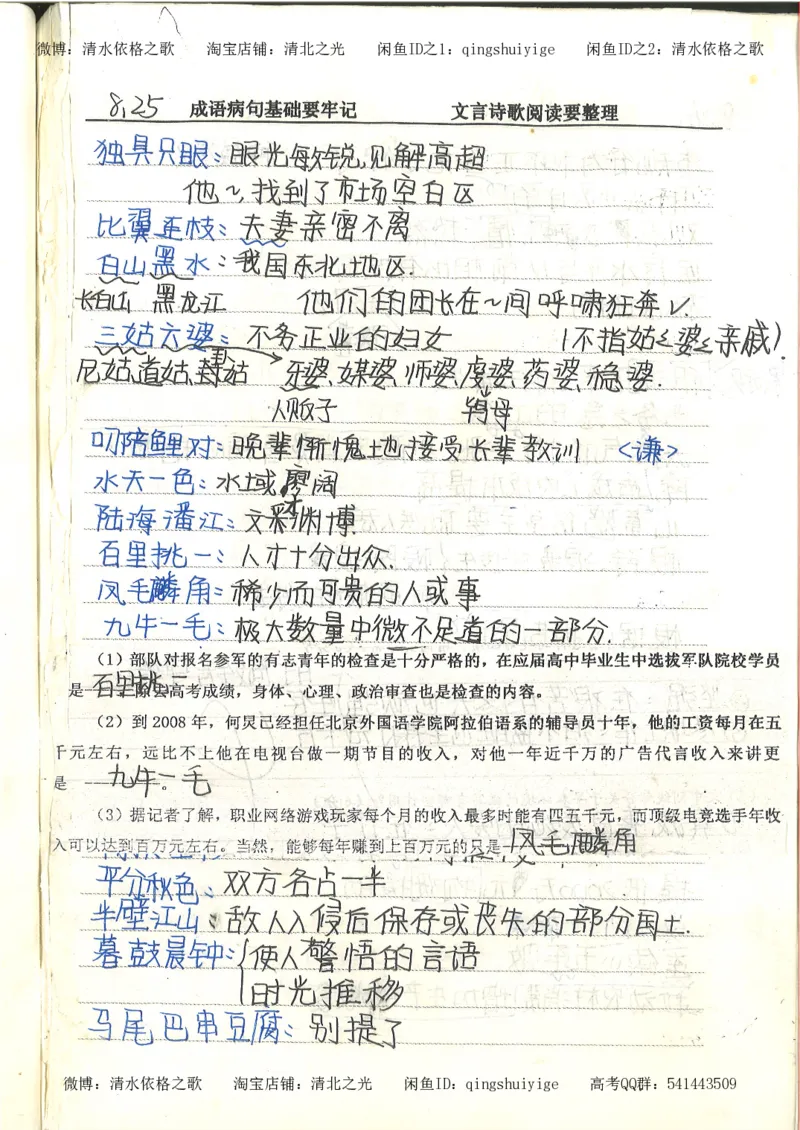 微博：清水依格之歌 淘宝店铺：清北之光 闲鱼ID之1：qingshuiyige 闲鱼ID之2：清水依格之歌
8.25 成语病句基础要牢记 文言诗歌阅读要整理
独具只眼：眼光敏锐,见解高超
他~,找到了市场空白区
比翼连枝：夫妻亲密不离
白山黑水：我国东北地区.
长白山 黑龙江 他们的团长在~间呼啸狂奔√.
三姑六婆：不务正业的妇女 (不指姑姑婆婆亲戚).
卦
尼姑,道姑, 姑 牙婆、媒婆、师婆、虔婆、药婆、稳婆.
人贩子 鸨母
叨陪鲤对：晚辈惭愧地接受长辈教训 <谦>
水天一色：水域廖阔
才
陆海潘江：文 渊博.
百里挑一：人才十分出众.
凤毛麟角：稀少而可贵的人或事
九牛一毛：极大数量中微不足道的一部分.
（1）部队对报名参军的有志青年的检查是十分严格的，在应届高中毕业生中选拔军队院校学员
是 百里挑一 除去高考成绩，身体、心理、政治审查也是检查的内容。
（2）到 2008 年，何炅已经担任北京外国语学院阿拉伯语系的辅导员十年，他的工资每月在五
千元左右，远比不上他在电视台做一期节目的收入，对他一年近千万的广告代言收入来讲更
是 九牛一毛。
（3）据记者了解，职业网络游戏玩家每个月的收入最多时能有四五千元，而顶级电竞选手年收
入可以达到百万元左右。当然，能够每年赚到上百万元的只是 凤毛麟角
平分秋色：双方各占一半
半壁江山：敌人入侵后保存或丧失的部分国土.
暮鼓晨钟：使人警悟的言语
时光推移
马尾巴串豆腐：别提了
微博：清水依格之歌 淘宝店铺：清北之光 闲鱼ID：qingshuiyige 高考QQ群：541443509